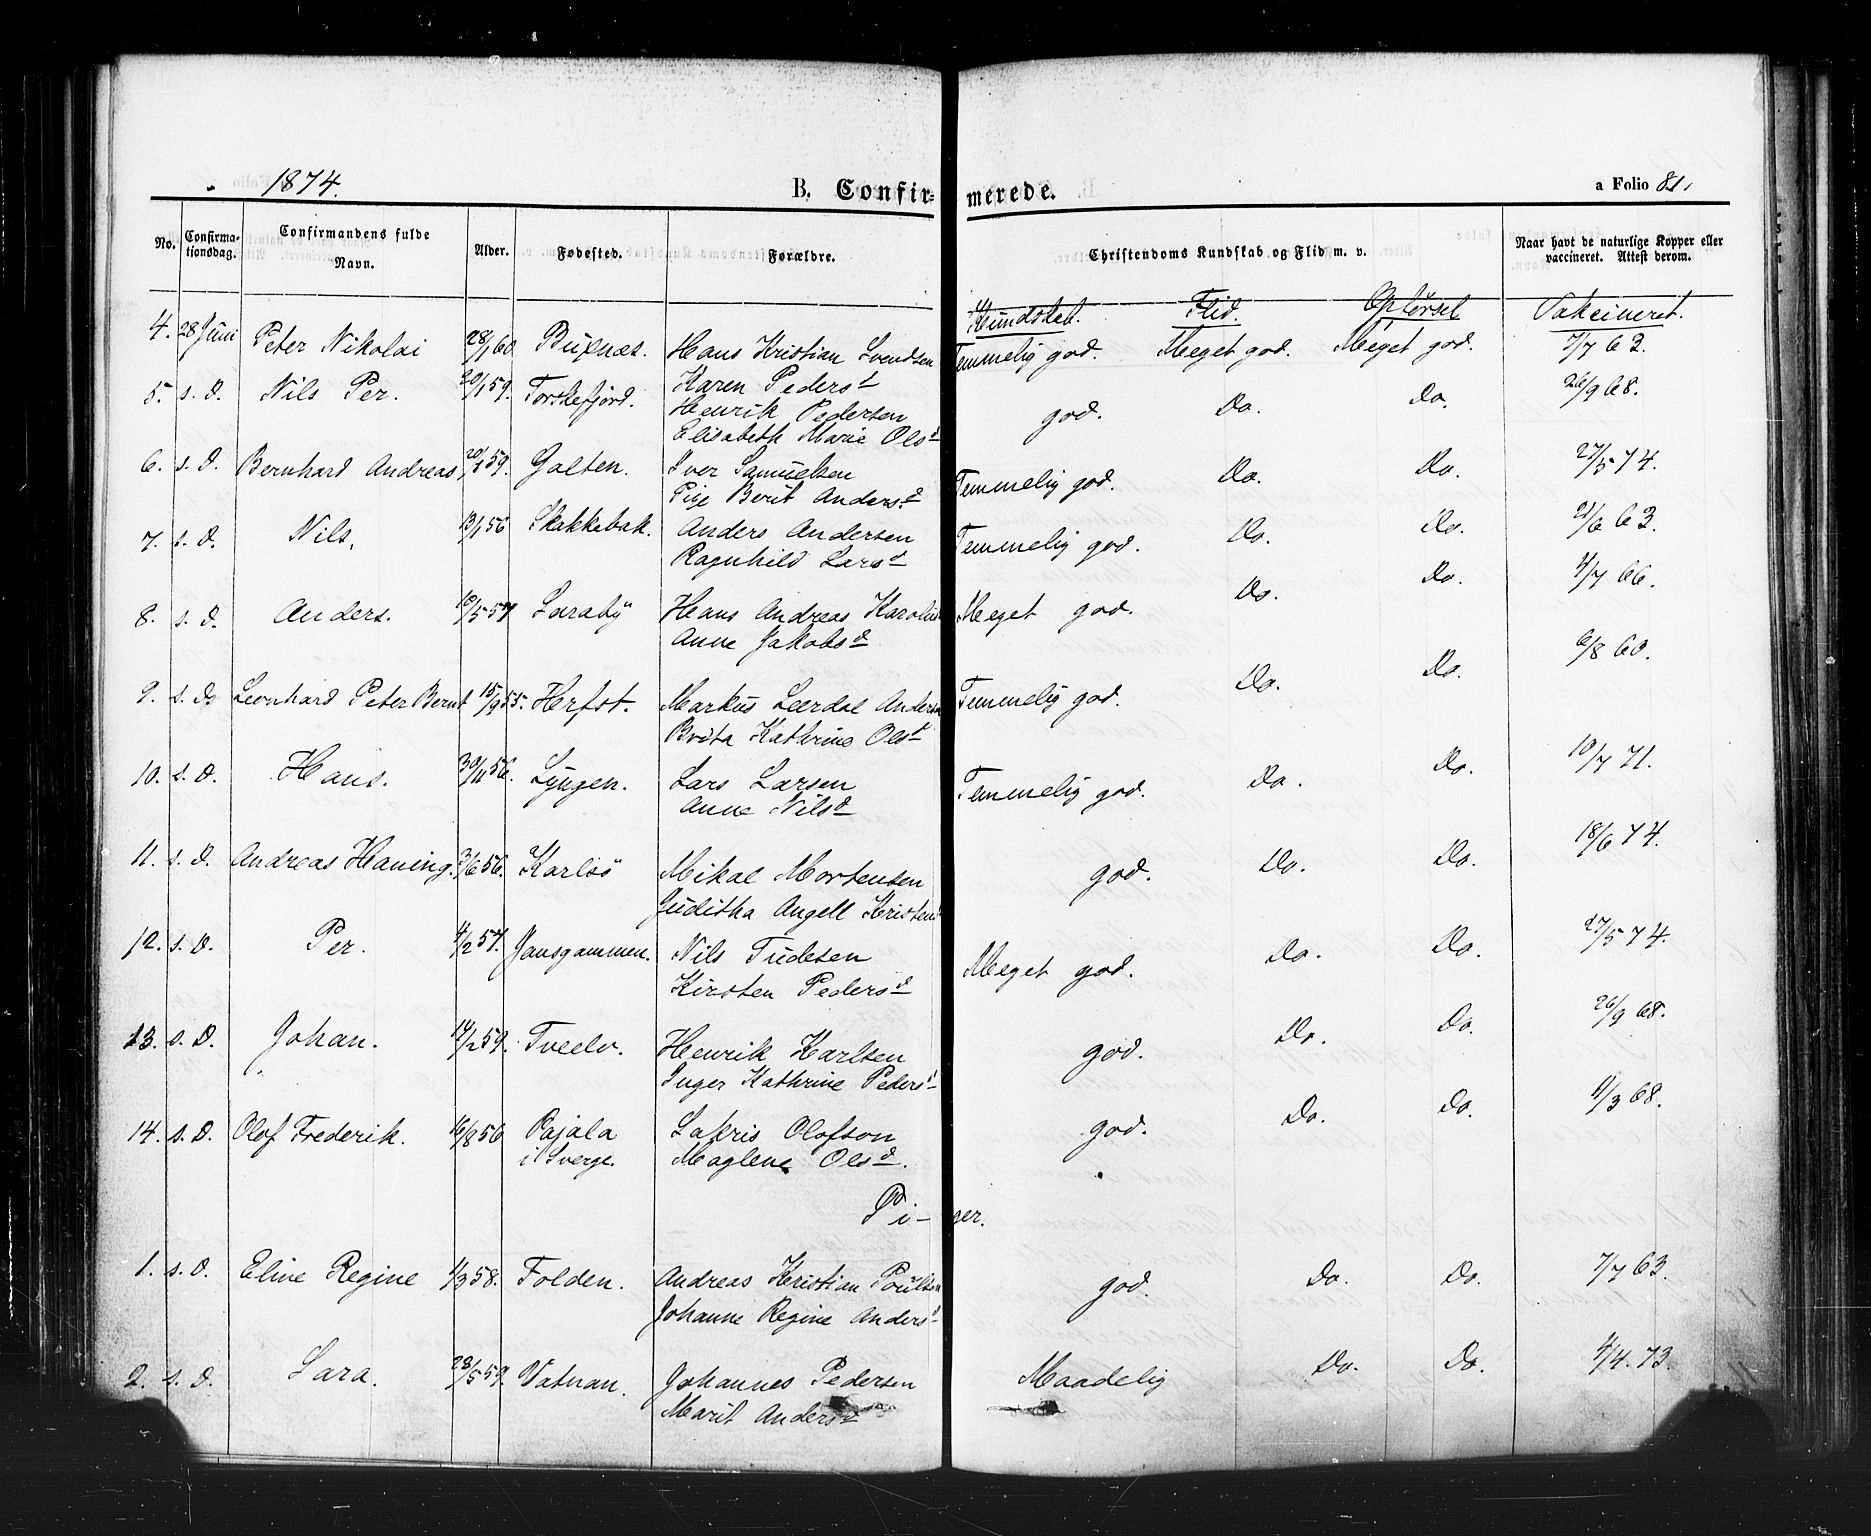 1874. B. Confirmerede. a Folio 81,
No. Confirmationsdag. Confirmandens fulde Navn. Alder. Fødested. Forældre. Christendoms Kundskab og Flid m. v. Naar havt de naturlige Kopper eller vaccineret. Attest derom.
Kundskab. Flid. Opførsel Vakcineret.
4. 28 Juni Peter Nikolai 28/1 60 Buxnæs. Hans Kristian Svendsen Temmelig god. Meget god. Meget god. 7/7 63.
Karen Pedersd
5. s. D. Nils Per. 20/1 59. Torskefjord. Henrik Pedersen god. Do. Do. 26/9 68.
Elisabeth Marie Olsd
6. s. D. Bernhard Andreas 59. Galten. Iver Samuelsen Temmelig god. Do. Do. 27/5 74.
Berit Andersd
7. s. D. Nils, 13/1 56 Skakkebak. Anders Andersen Temmelig god. Do. Do. 21/6 63.
Ragnhild Larsd
8. s. D. Anders. 10/5 57 Laraby Hans Andreas Meget god. Do. Do. 4/7 66.
Anne Jakobsd
9. s. D. Leonhard Peter Bernt 15/9 55. Herfst. Markus Leerdal Temmelig god. Do. Do. 6/8 60.
Brita Kathrine Olsd
10. s. D. Hans. 30/11 56. Lyngen. Lars Larsen Temmelig god. Do. Do. 10/7 71.
Anne Nilsd
11. s. D. Andreas Haning. 3/6 56. Karlsö Mikal Mortensen god. Do. Do. 18/6 74.
Juditha Angell
12. s. D. Per. 4/2 57. Jansgammen. Nils Tudesen Meget god. Do. Do. 27/5 74.
Kirsten Pedersd
13. s. D. Johan. 14/2 59. Tveelv. Henrik Karlsen god. Do. Do. 26/9 68.
Inger Kathrine Pedersd
14. s. D. Olof Frederik. 16/8 56 Pajala Olofson god. Do. Do. 11/3 68.
i Sverge. Maglena Olsd.
Piger.
1. s. D. Eline Regine 1/3 58. Folden. Andreas Kristian Poulsen god. Do. Do. 7/7 63.
Johanne Regine Andersd
2. s. D. Sara. 28/5 59. Vatnan. Johannes Pedersen Maadelig Do. Do. 4/4. 73.
Marit Andersd